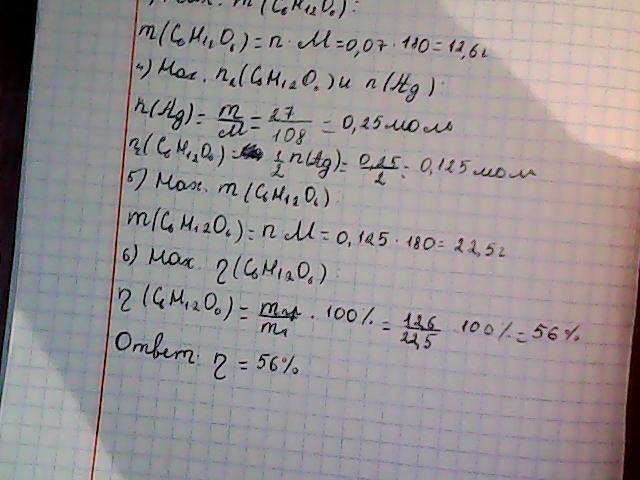 ) Нах. m(C6H12O6):
m(C6H12O6) = n · M = 0,07 · 180 = 12,6 г
4) Нах. n2(C6H12O6) и n(Ag):
n(Ag) = m/M = 27/108 = 0,25 моль
n2(C6H12O6) = 1/2 n(Ag) = 0,25/2 = 0,125 моль
5) Нах. m(C6H12O6):
m(C6H12O6) = n · M = 0,125 · 180 = 22,5 г
6) Нах. η(C6H12O6):
η(C6H12O6) = mпр/m1 · 100% = 12,6/22,5 · 100% = 56%
Ответ: η = 56%